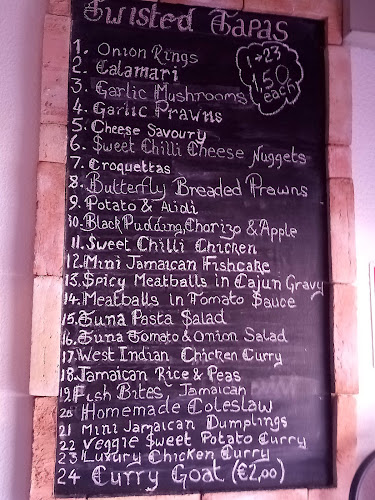 Twisted Tapas
1→23
1,50
each
1. Onion Rings
2. Calamari
3. Garlic Mushrooms
4. Garlic Prawns
5. Cheese Savoury
6. Sweet Chilli Cheese Nuggets
7. Croquettas
8. Butterfly Breaded Prawns
9. Potato & Alidi
10. Black Pudding, Chorizo & Apple
11. Sweet Chilli Chicken
12. Mini Jamaican Fishcake
13. Spicy Meatballs in Cajun Gravy
14. Meatballs in Tomato Sauce
15. Tuna Pasta Salad
16. Tuna Tomato & Onion Salad
17. West Indian Chicken Curry
18. Jamaican Rice & Peas
19. Fish Bites, Jamaican
20 Homemade Coleslaw
21 Mini Jamaican Dumplings
22 Veggie Sweet Potato Curry
23 Luxury Chicken Curry
24 Curry Goat (€2,00)